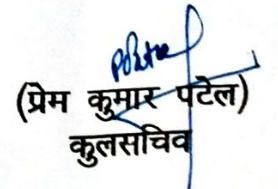 (प्रेम कुमार पटेल)
कुलसचिव